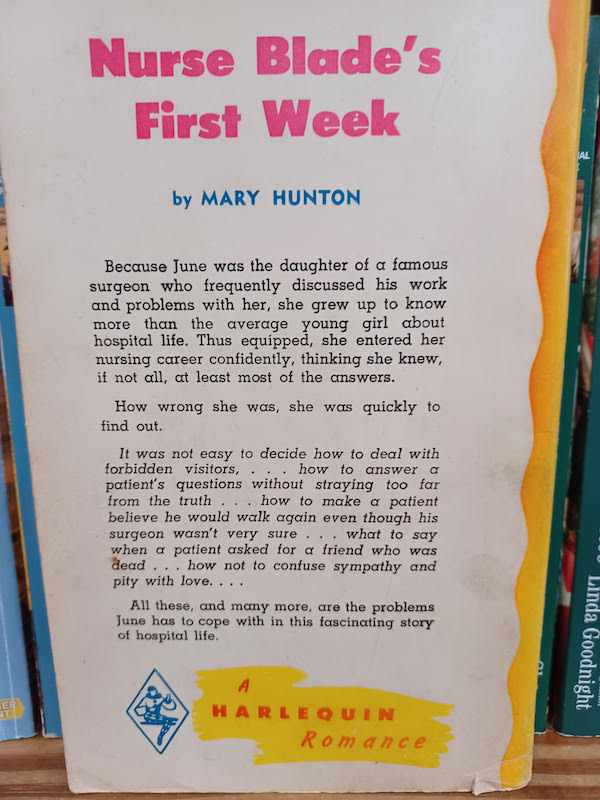 Nurse Blade's
First Week
by MARY HUNTON
Because June was the daughter of a famous
surgeon who frequently discussed his work
and problems with her, she grew up to know
more than the average young girl about
hospital life. Thus equipped, she entered her
nursing career confidently, thinking she knew,
if not all, at least most of the answers.
How wrong she was, she was quickly to
find out.
It was not easy to decide how to deal with
forbidden visitors, . . . how to answer a
patient's questions without straying too far
from the truth . . . how to make a patient
believe he would walk again even though his
surgeon wasn't very sure . . . what to say
when a patient asked for a friend who was
dead . . . how not to confuse sympathy and
pity with love. . . .
All these, and many more, are the problems
June has to cope with in this fascinating story
of hospital life.
A
HARLEQUIN
Romance
Linda Goodnight